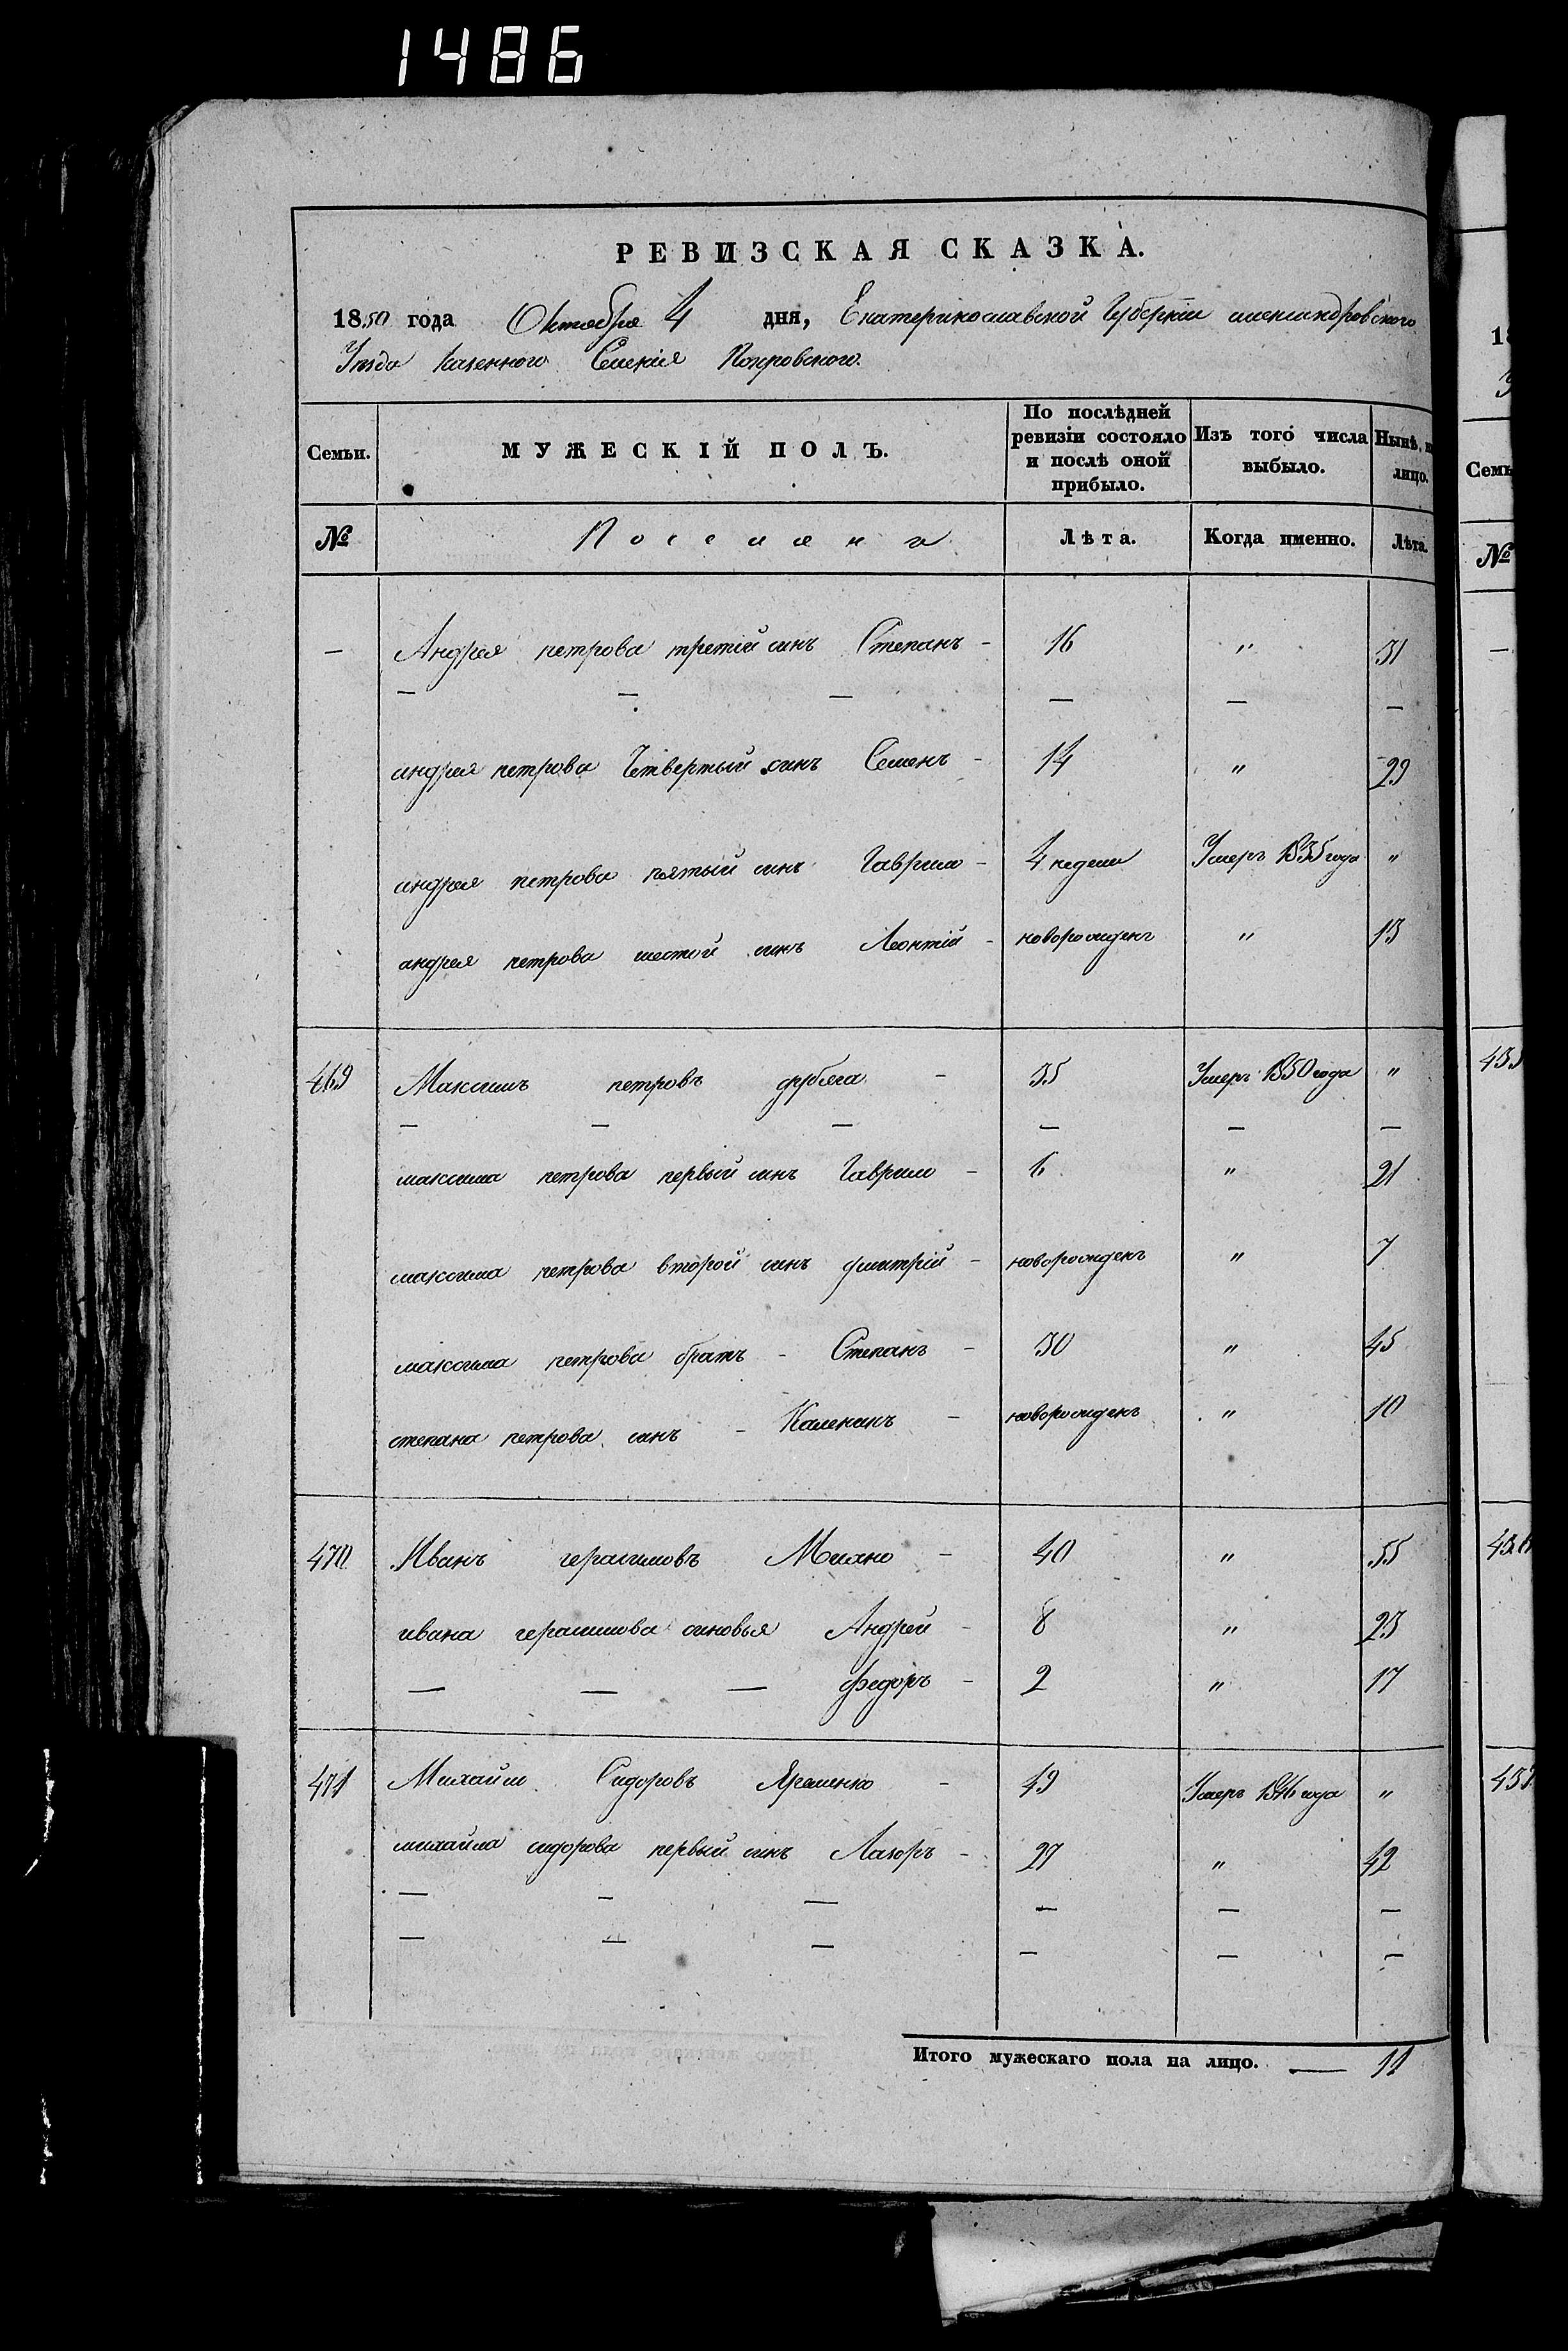 1486
РЕВИЗСКАЯ СКАЗКА.
1850 года Октября 4 дня, Екатеринославской Губерніи александровского
Уезда казенного Селенія Покровского.
Семьи. МУЖЕСКІЙ ПОЛЪ. По послѣдней ревизіи состояло и послѣ оной прибыло. Изъ того числа выбыло. Нынѣ на лицо.
№ Поселяне Лѣта. Когда именно. Лѣта.
— Андрея петрова третій синъ Степанъ - 16 " 31
— — — — — —
андрея петрова Четвертый синъ Семенъ - 14 " 29
андрея петрова пятый синъ Гаврила - 4 недели Умеръ 1835 года "
андрея петрова шестой синъ Леонтій - новорожденъ " 13
469 Максимъ петровъ дубяга - 35 Умеръ 1850 года "
— — — — — —
максима петрова первый синъ Гаврило - 6 " 21
максима петрова второй синъ дмитрій - новорожденъ " 7
максима петрова братъ - Степанъ - 30 " 45
степана петрова синъ - Каленикъ - новорожденъ " 10
470 Иванъ герасимовъ - 40 " 55
ивана герасимова синовья Андрей - 8 " 23
— — — Федоръ - 2 " 17
471 Михайло Сидоровъ Яременко - 49 Умеръ 1846 года "
михайла сидорова первый синъ Лазоръ - 27 " 42
— — — — — —
— — — — — —
Итого мужескаго пола на лицо. — 11
18
Семь
№
—
455
456
457